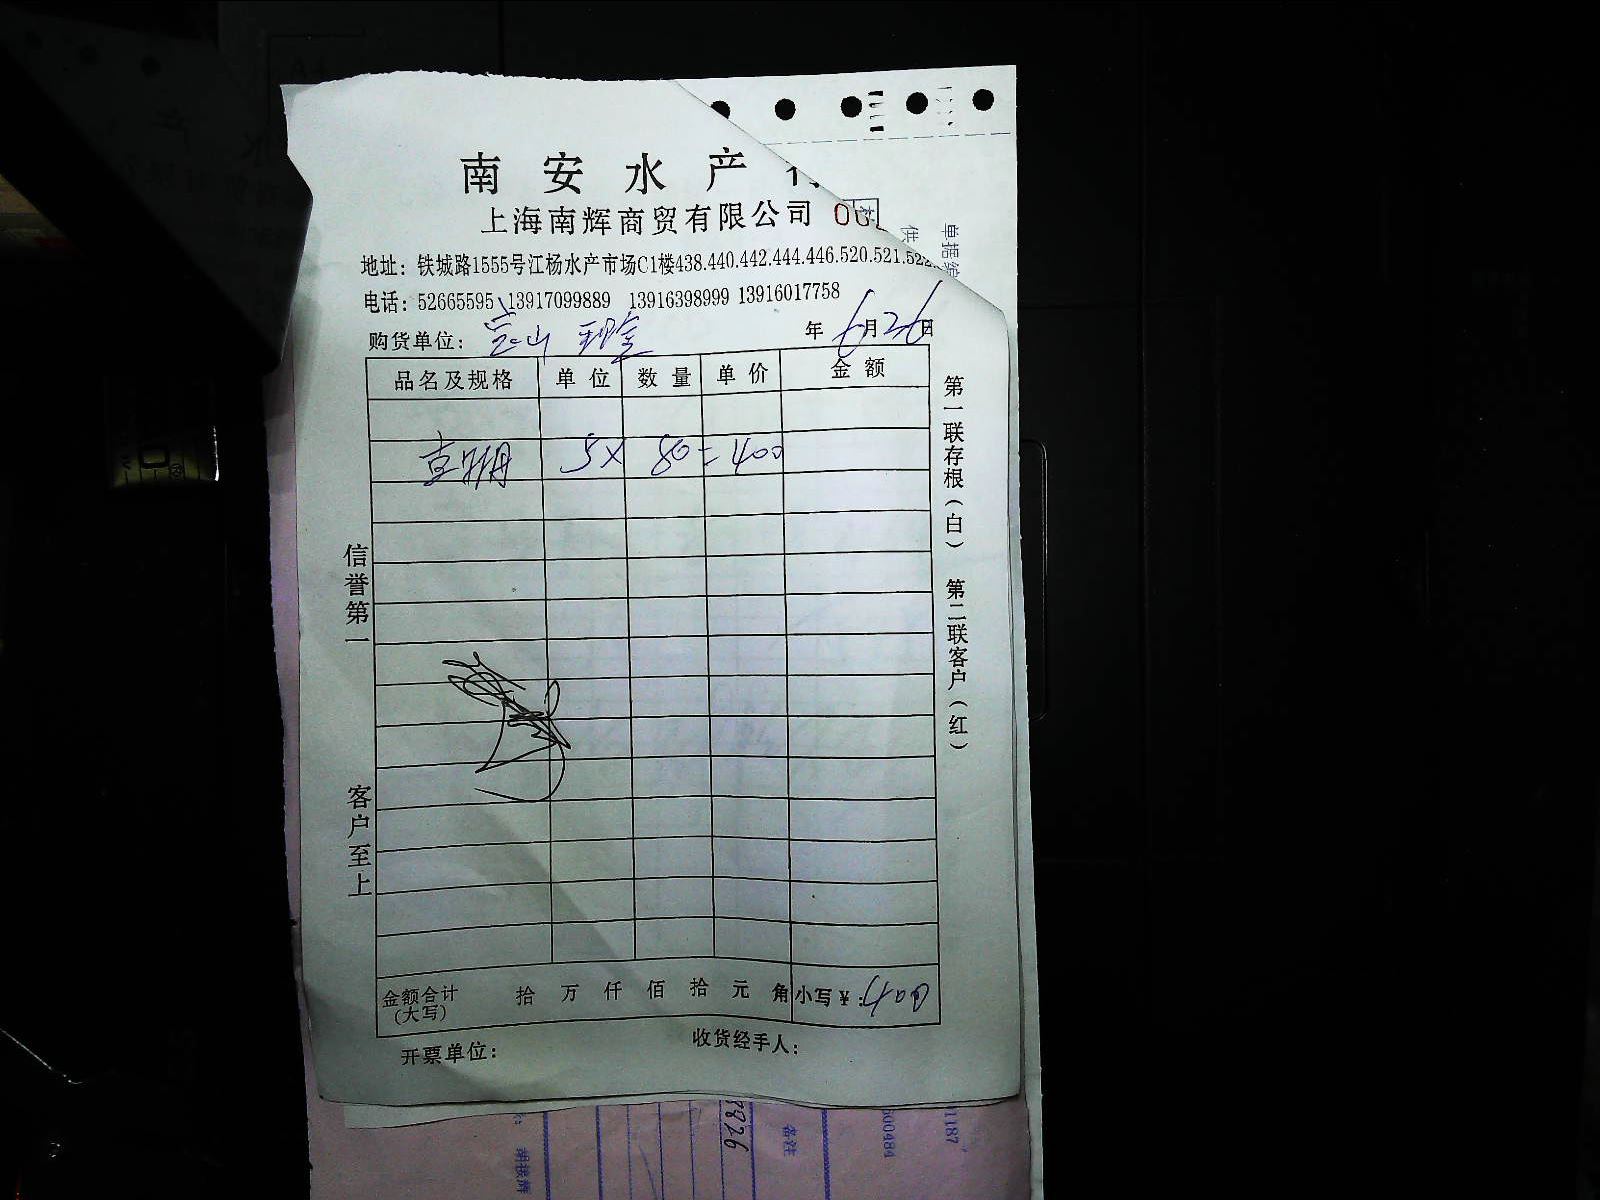 南安水产
上海南辉商贸有限公司 00
地址：铁城路1555号江杨水产市场C1楼438.440.442.444.446.520.521.522
电话：52665595 13917099889 13916398999 13916017758
购货单位：宝山 年6月26日
品名及规格 单位 数量 单价 金额
5× 80=400
金额合计(大写) 拾万仟佰拾元角 小写￥：400
开票单位： 收货经手人：
信誉第一 客户至上
第一联存根（白） 第二联客户（红）
单据编
供
备注